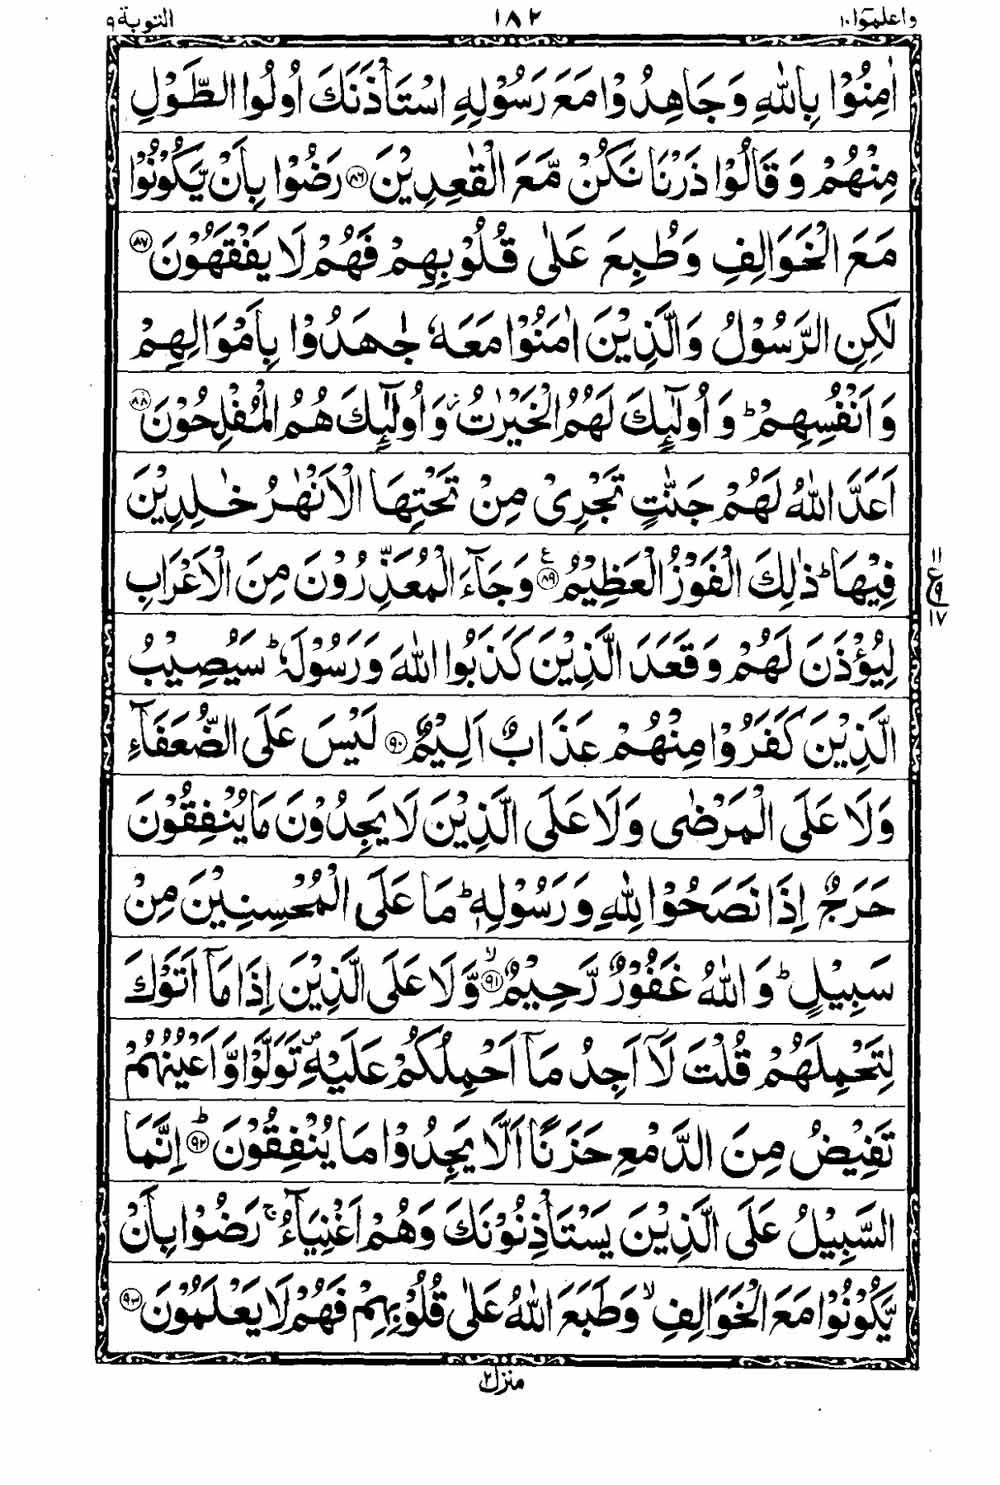 واعلموا ١٠ ١٨٢ التوبة ٩
اٰمِنُوْا بِاللّٰهِ وَجَاهِدُوْا مَعَ رَسُوْلِهِ اسْتَاْذَنَكَ اُولُوا الطَّوْلِ
مِنْهُمْ وَقَالُوْا ذَرْنَا نَكُنْ مَّعَ الْقٰعِدِيْنَ ۝٨٦ رَضُوْا بِاَنْ يَّكُوْنُوْا
مَعَ الْخَوَالِفِ وَطُبِعَ عَلٰى قُلُوْبِهِمْ فَهُمْ لَا يَفْقَهُوْنَ ۝٨٧
لٰكِنِ الرَّسُوْلُ وَالَّذِيْنَ اٰمَنُوْا مَعَهٗ جٰهَدُوْا بِاَمْوَالِهِمْ
وَاَنْفُسِهِمْ ؕ وَاُولٰٓئِكَ لَهُمُ الْخَيْرٰتُ ؗ وَاُولٰٓئِكَ هُمُ الْمُفْلِحُوْنَ ۝٨٨
اَعَدَّ اللّٰهُ لَهُمْ جَنّٰتٍ تَجْرِىْ مِنْ تَحْتِهَا الْاَنْهٰرُ خٰلِدِيْنَ
فِيْهَا ؕ ذٰلِكَ الْفَوْزُ الْعَظِيْمُ ۝٨٩ ع وَجَآءَ الْمُعَذِّرُوْنَ مِنَ الْاَعْرَابِ
١١ ع ٩ ١٧
لِيُؤْذَنَ لَهُمْ وَقَعَدَ الَّذِيْنَ كَذَبُوا اللّٰهَ وَرَسُوْلَهٗ ؕ سَيُصِيْبُ
الَّذِيْنَ كَفَرُوْا مِنْهُمْ عَذَابٌ اَلِيْمٌ ۝٩٠ لَيْسَ عَلَى الضُّعَفَآءِ
وَلَا عَلَى الْمَرْضٰى وَلَا عَلَى الَّذِيْنَ لَا يَجِدُوْنَ مَا يُنْفِقُوْنَ
حَرَجٌ اِذَا نَصَحُوْا لِلّٰهِ وَرَسُوْلِهٖ ؕ مَا عَلَى الْمُحْسِنِيْنَ مِنْ
سَبِيْلٍ ؕ وَاللّٰهُ غَفُوْرٌ رَّحِيْمٌ ۝٩١ ۙ وَّلَا عَلَى الَّذِيْنَ اِذَا مَاۤ اَتَوْكَ
لِتَحْمِلَهُمْ قُلْتَ لَاۤ اَجِدُ مَاۤ اَحْمِلُكُمْ عَلَيْهِ ۪ تَوَلَّوْا وَّاَعْيُنُهُمْ
تَفِيْضُ مِنَ الدَّمْعِ حَزَنًا اَلَّا يَجِدُوْا مَا يُنْفِقُوْنَ ۝٩٢ ؕ اِنَّمَا
السَّبِيْلُ عَلَى الَّذِيْنَ يَسْتَاْذِنُوْنَكَ وَهُمْ اَغْنِيَآءُ ۚ رَضُوْا بِاَنْ
يَّكُوْنُوْا مَعَ الْخَوَالِفِ ۙ وَطَبَعَ اللّٰهُ عَلٰى قُلُوْبِهِمْ فَهُمْ لَا يَعْلَمُوْنَ ۝٩٣
منزل ٢